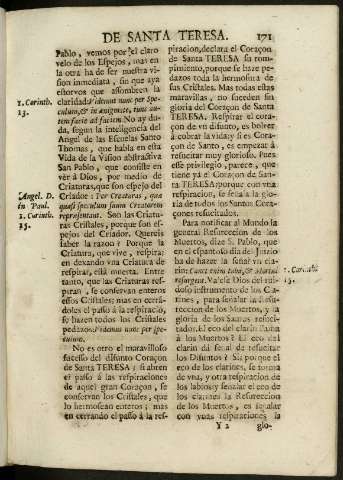 DE SANTA TERESA. 171
Pablo, vemos por el claro
velo de los Espejos, mas en
la otra ha de ser nuestra vi-
sion inmediata, sin que aya
estorvos que assombren la
claridad: Videmus nunc per Spe-
culum, & in ænigmate, tunc au-
tem facie ad faciem. No ay du-
da, segun la inteligencia del
Angel de las Escuelas Santo
Thomas, que habla en esta
Vida de la Vision abstractiva
San Pablo, que consiste en
vèr à Dios, por medio de
Criaturas, que son espejo del
Criador: Per Creaturas, qua
quasi speculum sunt Creatorem
representant. Son las Criatu-
ras Cristales, porque son es-
pejos del Criador. Quereis
saber la razon? Porque la
Criatura, que vive, respira:
en dexando vna Criatura de
respirar, està muerta. Entre
tanto, que las Criaturas res-
piran, se conservan enteros
essos Cristales; mas en cerràn-
doles el passo à la respiraciò,
se hazen todos los Cristales
pedazos: Videmus nunc per spe-
culum.
No es otro el maravilloso
sucesso del difunto Coraçon
de Santa TERESA; si abren
el passo à las respiraciones
de aquel gran Coraçon, se
conservan los Cristales, que
lo hermosean enteros; mas
en cerrando el passo à la res-
1. Corinth.
13.
Angel. D.
in Paul.
1. Corinth.
13.
piracion, declara el Coraçon
de Santa TERESA su rom-
pimiento, porque se haze pe-
dazos toda la hermosura de
sus Cristales. Mas todas estas
maravillas, no suceden sin
gloria del Coraçon de Santa
TERESA. Respirar el cora-
çon de vn difunto, es bolver
à cobrar la vida; y si es Cora-
çon de Santo, es empezar à
resucitar muy glorioso. Pues
esse privilegio, parece, que
tiene yà el Coraçon de San-
ta TERESA: porque con vna
respiracion, se señala la glo-
ria de todos los Santos Cora-
çones resucitados.
Para notificar al Mundo la
general Resurreccion de los
Muertos, dize S. Pablo, que
en el espantoso dia del Juizio
ha de hazer la señal vn cla-
rin: Canet enim tuba, & Mortui
resurgent. Valese Dios del rui-
doso instrumento de los Cla-
rines, para señalar la Resur-
reccion de los Muertos, y la
gloria de los Santos resuci-
tados. El eco del clarin llama
à los Muertos? El eco del
clarin dà señal de resucitar
los Difuntos? Si; porque el
eco de los clarines, se forma
de vna, y otra respiracion de
los labios; y señalar el eco de
los clarines la Resurreccion
de los Muertos, es señalar
con vnas respiraciones la
1. Corinth.
15.
Y 2 glo-